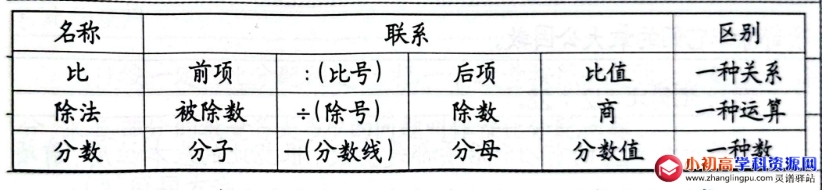 名称 联系 区别
比 前项 :(比号) 后项 比值 一种关系
除法 被除数 ÷(除号) 除数 商 一种运算
分数 分子 —(分数线) 分母 分数值 一种数
小初高学科资源网
www.zhanglingpu.com 灵谱驿站